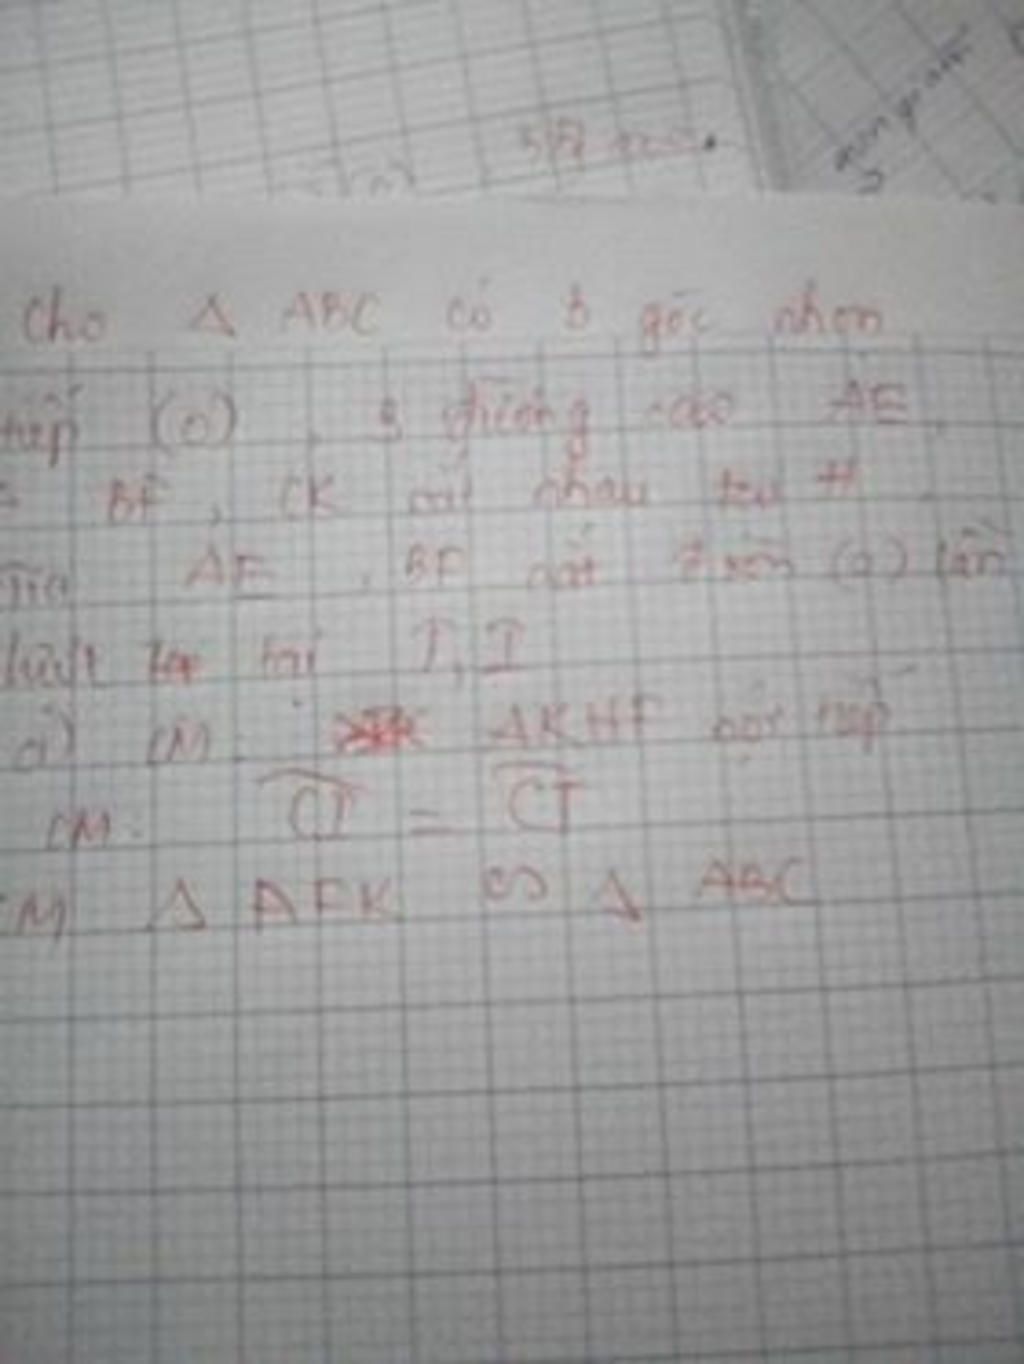 Cho Δ ABC có 3 góc nhọn
tiếp (O), 3 đường cao AE,
BF, CK cắt nhau tại H.
Tia AE, BF cắt đường tròn (O) lần
lượt tại I, J
a) CM: AKHF nội tiếp
CM: CI = CJ
CM Δ AFK ∽ Δ ABC